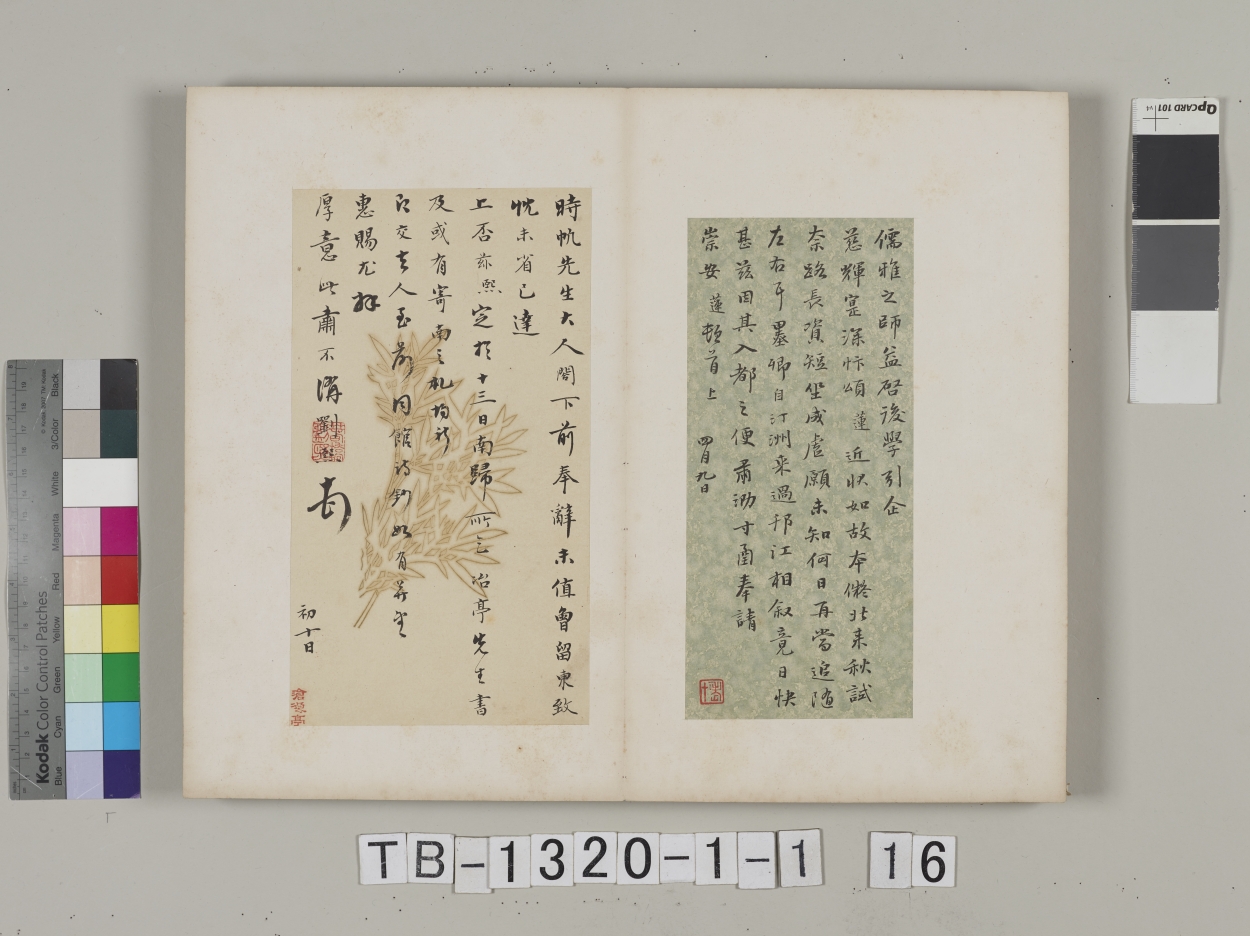 儒雅之師益啓後學引企
慈輝寔深忭頌蓮近狀如故本儗北來秋試
奈路長資短坐成虛願未知何日再當追隨
左右耳墨卿自汀洲來過邗江相叙竟日快
甚茲因其入都之便肅泐寸函奉請
崇安蓮頓首上
四月九日
時帆先生大人閣下前奉辭未值曾留柬致
忱未省已達
上否茲熙定於十三日南歸所言冶亭先生書
及或有寄南之札均祈
即交去人至前同館詩鈔如有並望
惠賜尤
厚意此肅不
初十日
滄浪亭
Kodak Color Control Patches
Blue Cyan Green Yellow Red Magenta White 3/Color Black
QPCARD 101 v4
TB-1320-1-1 16